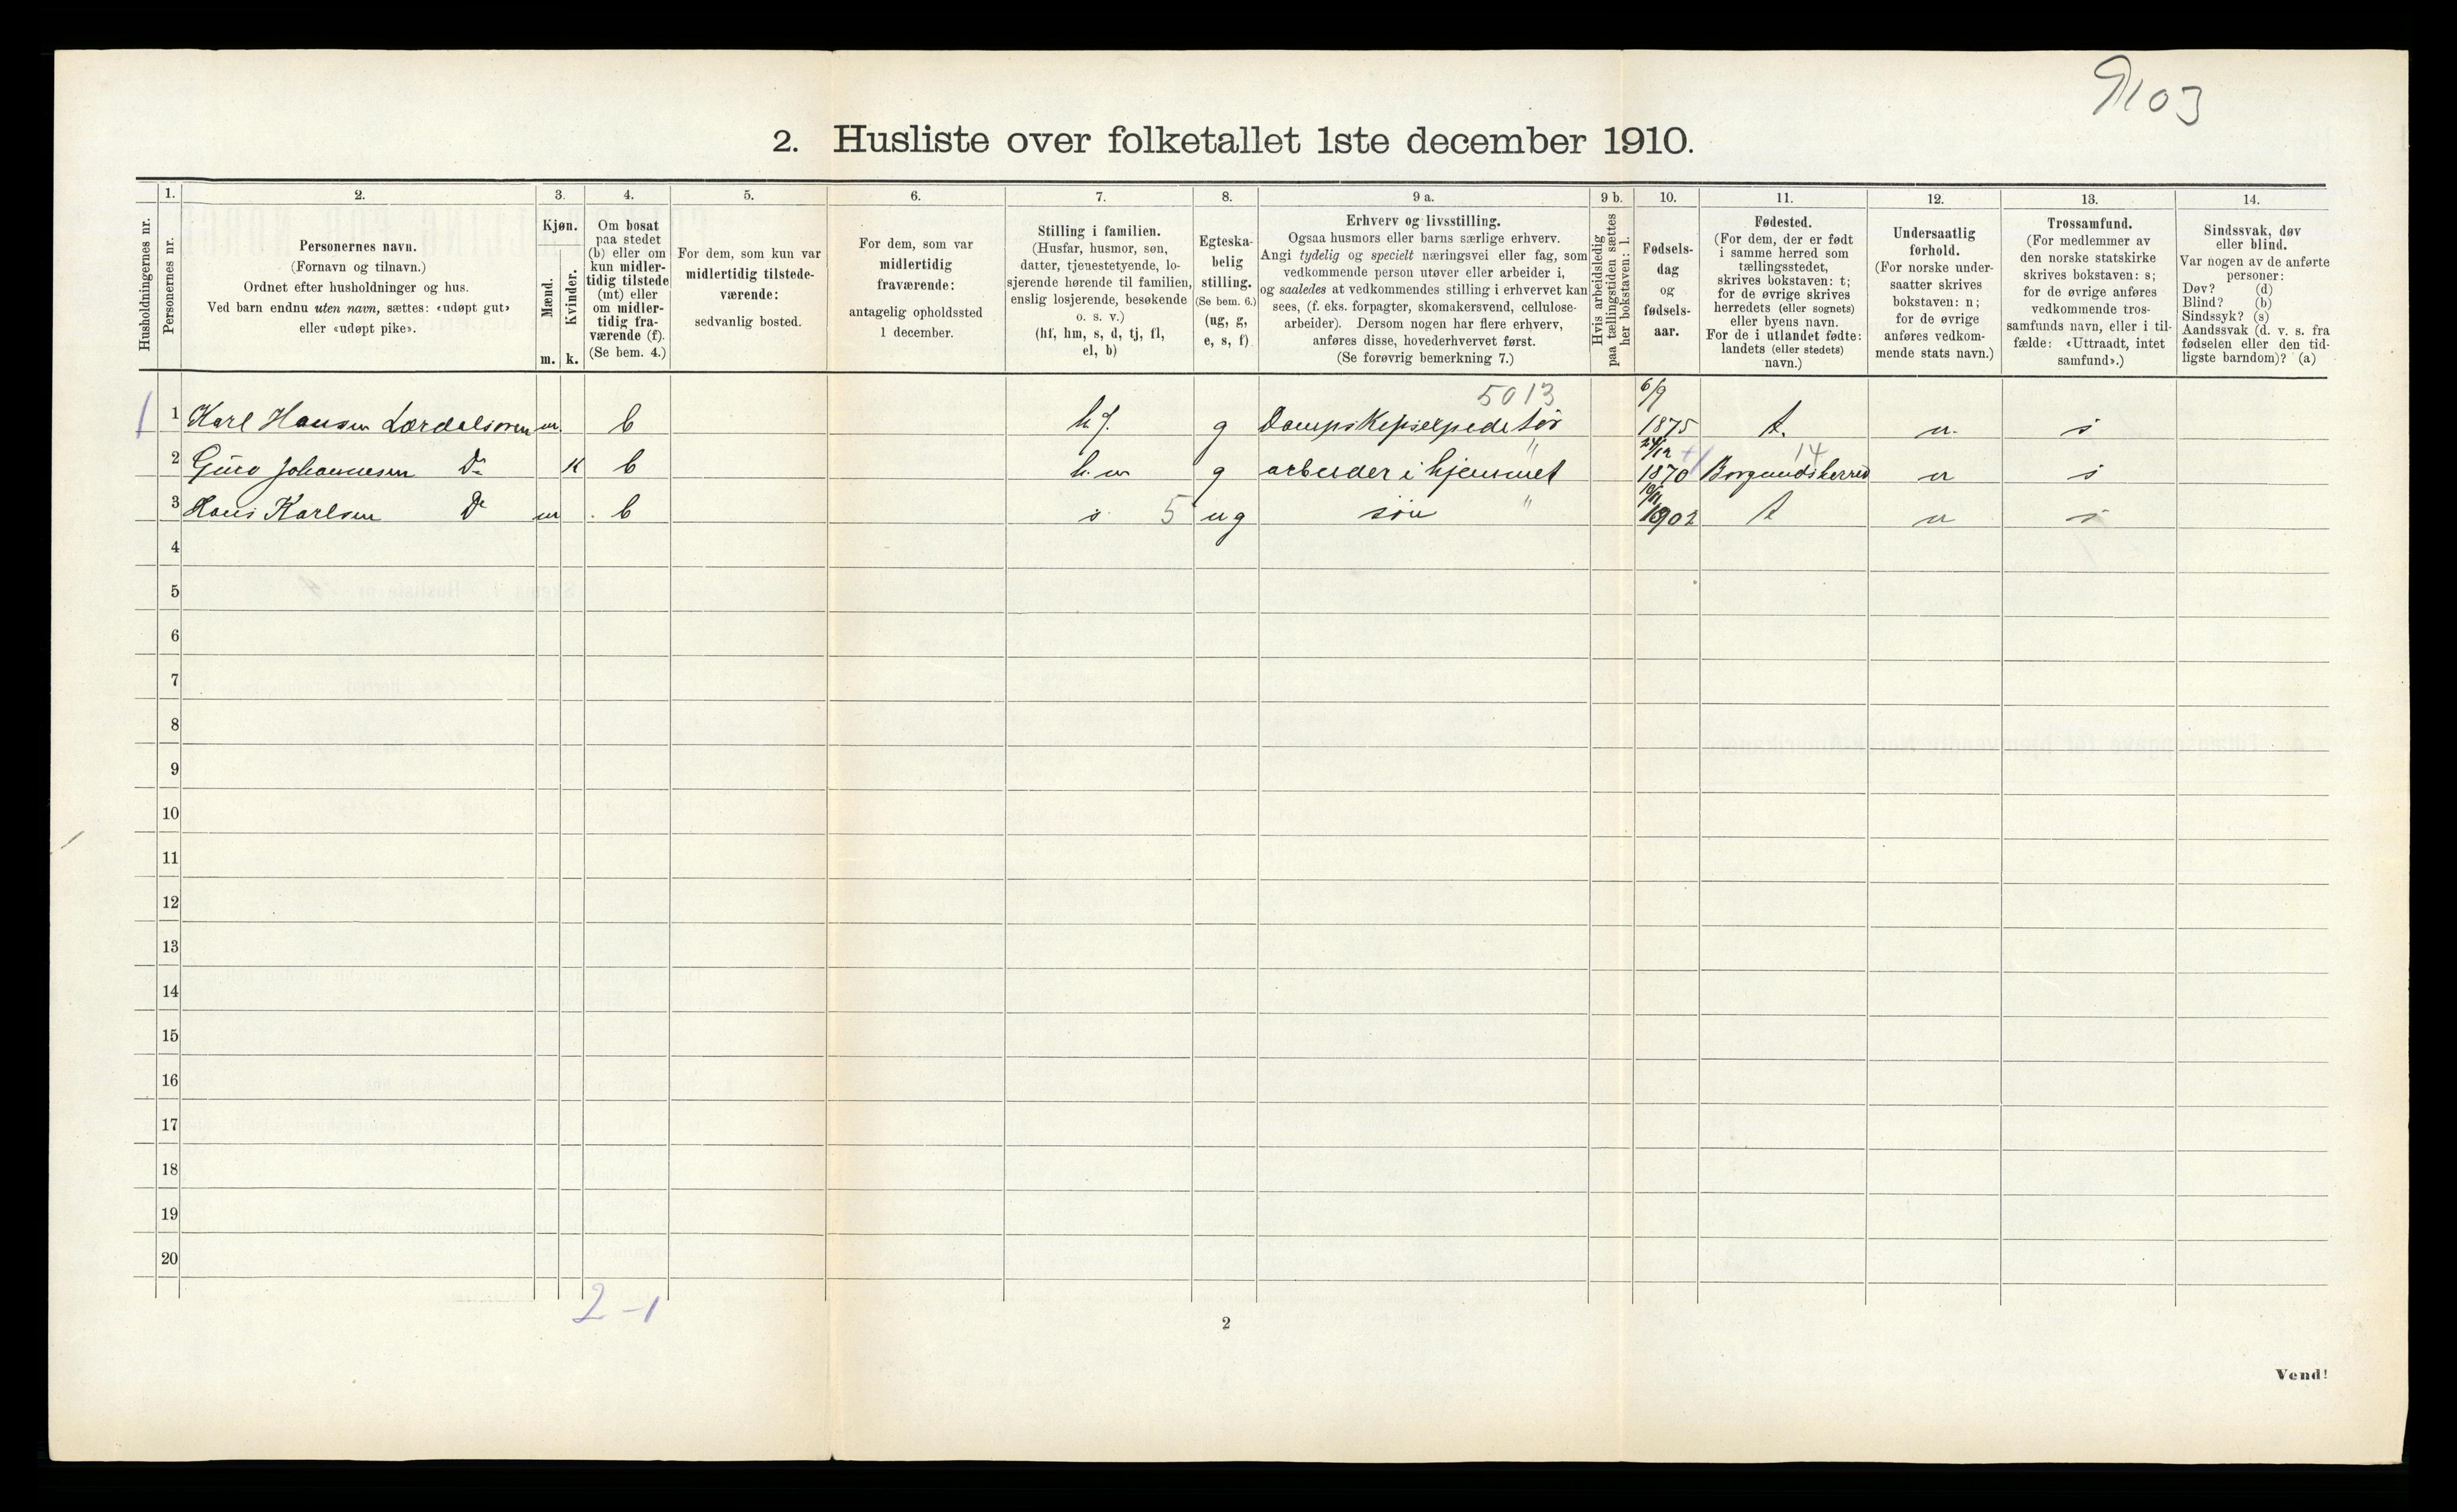 9103
2. Husliste over folketallet 1ste december 1910.
Husholdningernes nr.
1.
Personernes nr.
2.
Personernes navn.
(Fornavn og tilnavn.)
Ordnet efter husholdninger og hus.
Ved barn endnu uten navn, sættes: «udøpt gut»
eller «udøpt pike».
3.
Kjøn.
Mænd.
Kvinder.
m. k.
4.
Om bosat
paa stedet
(b) eller om
kun midler-
tidig tilstede
(mt) eller
om midler-
tidig fra-
værende (f).
(Se bem. 4.)
5.
For dem, som kun var
midlertidig tilstede-
værende:
sedvanlig bosted.
6.
For dem, som var
midlertidig
fraværende:
antagelig opholdssted
1 december.
7.
Stilling i familien.
(Husfar, husmor, søn,
datter, tjenestetyende, lo-
sjerende hørende til familien,
enslig losjerende, besøkende
o. s. v.)
(hf, hm, s, d, tj, fl,
el, b)
8.
Egteska-
belig
stilling.
(Se bem. 6.)
(ug, g,
e, s, f)
9 a.
Erhverv og livsstilling.
Ogsaa husmors eller barns særlige erhverv.
Angi tydelig og specielt næringsvei eller fag, som
vedkommende person utøver eller arbeider i,
og saaledes at vedkommendes stilling i erhvervet kan
sees, (f. eks. forpagter, skomakersvend, cellulose-
arbeider). Dersom nogen har flere erhverv,
anføres disse, hovederhvervet først.
(Se forøvrig bemerkning 7.)
9 b.
Hvis arbeidsledig
paa tællingstiden sættes
her bokstaven: l.
10.
Fødsels-
dag
og
fødsels-
aar.
11.
Fødested.
(For dem, der er født
i samme herred som
tællingsstedet,
skrives bokstaven: t;
for de øvrige skrives
herredets (eller sognets)
eller byens navn.
For de i utlandet fødte:
landets (eller stedets)
navn.)
12.
Undersaatlig
forhold.
(For norske under-
saatter skrives
bokstaven: n;
for de øvrige
anføres vedkom-
mende stats navn.)
13.
Trossamfund.
(For medlemmer av
den norske statskirke
skrives bokstaven: s;
for de øvrige anføres
vedkommende tros-
samfunds navn, eller i til-
fælde: «Uttraadt, intet
samfund».)
14.
Sindssvak, døv
eller blind.
Var nogen av de anførte
personer:
Døv? (d)
Blind? (b)
Sindssyk? (s)
Aandssvak (d. v. s. fra
fødselen eller den tid-
ligste barndom)? (a)
5013 6/9
1 1 Karl Hansen Lærdalsøren m b hf. g Dampskipsexpeditør 1875 t. n. s
" 24/12 14
2 Guro Johannesen Do K b hm g arbeider i hjemmet 1870 Borgundsherred n s
3 Hans Karlsen Do m b s 5 ug søn " 1902 t n s
4
5
6
7
8
9
10
11
12
13
14
15
16
17
18
19
20
2-1
2
Vend!